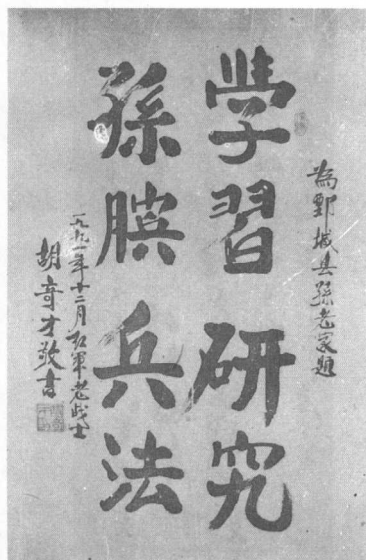 为鄄城县孫老家题
学習研究
孫臏兵法
一九九一年十二月红軍老战士
胡奇才敬书